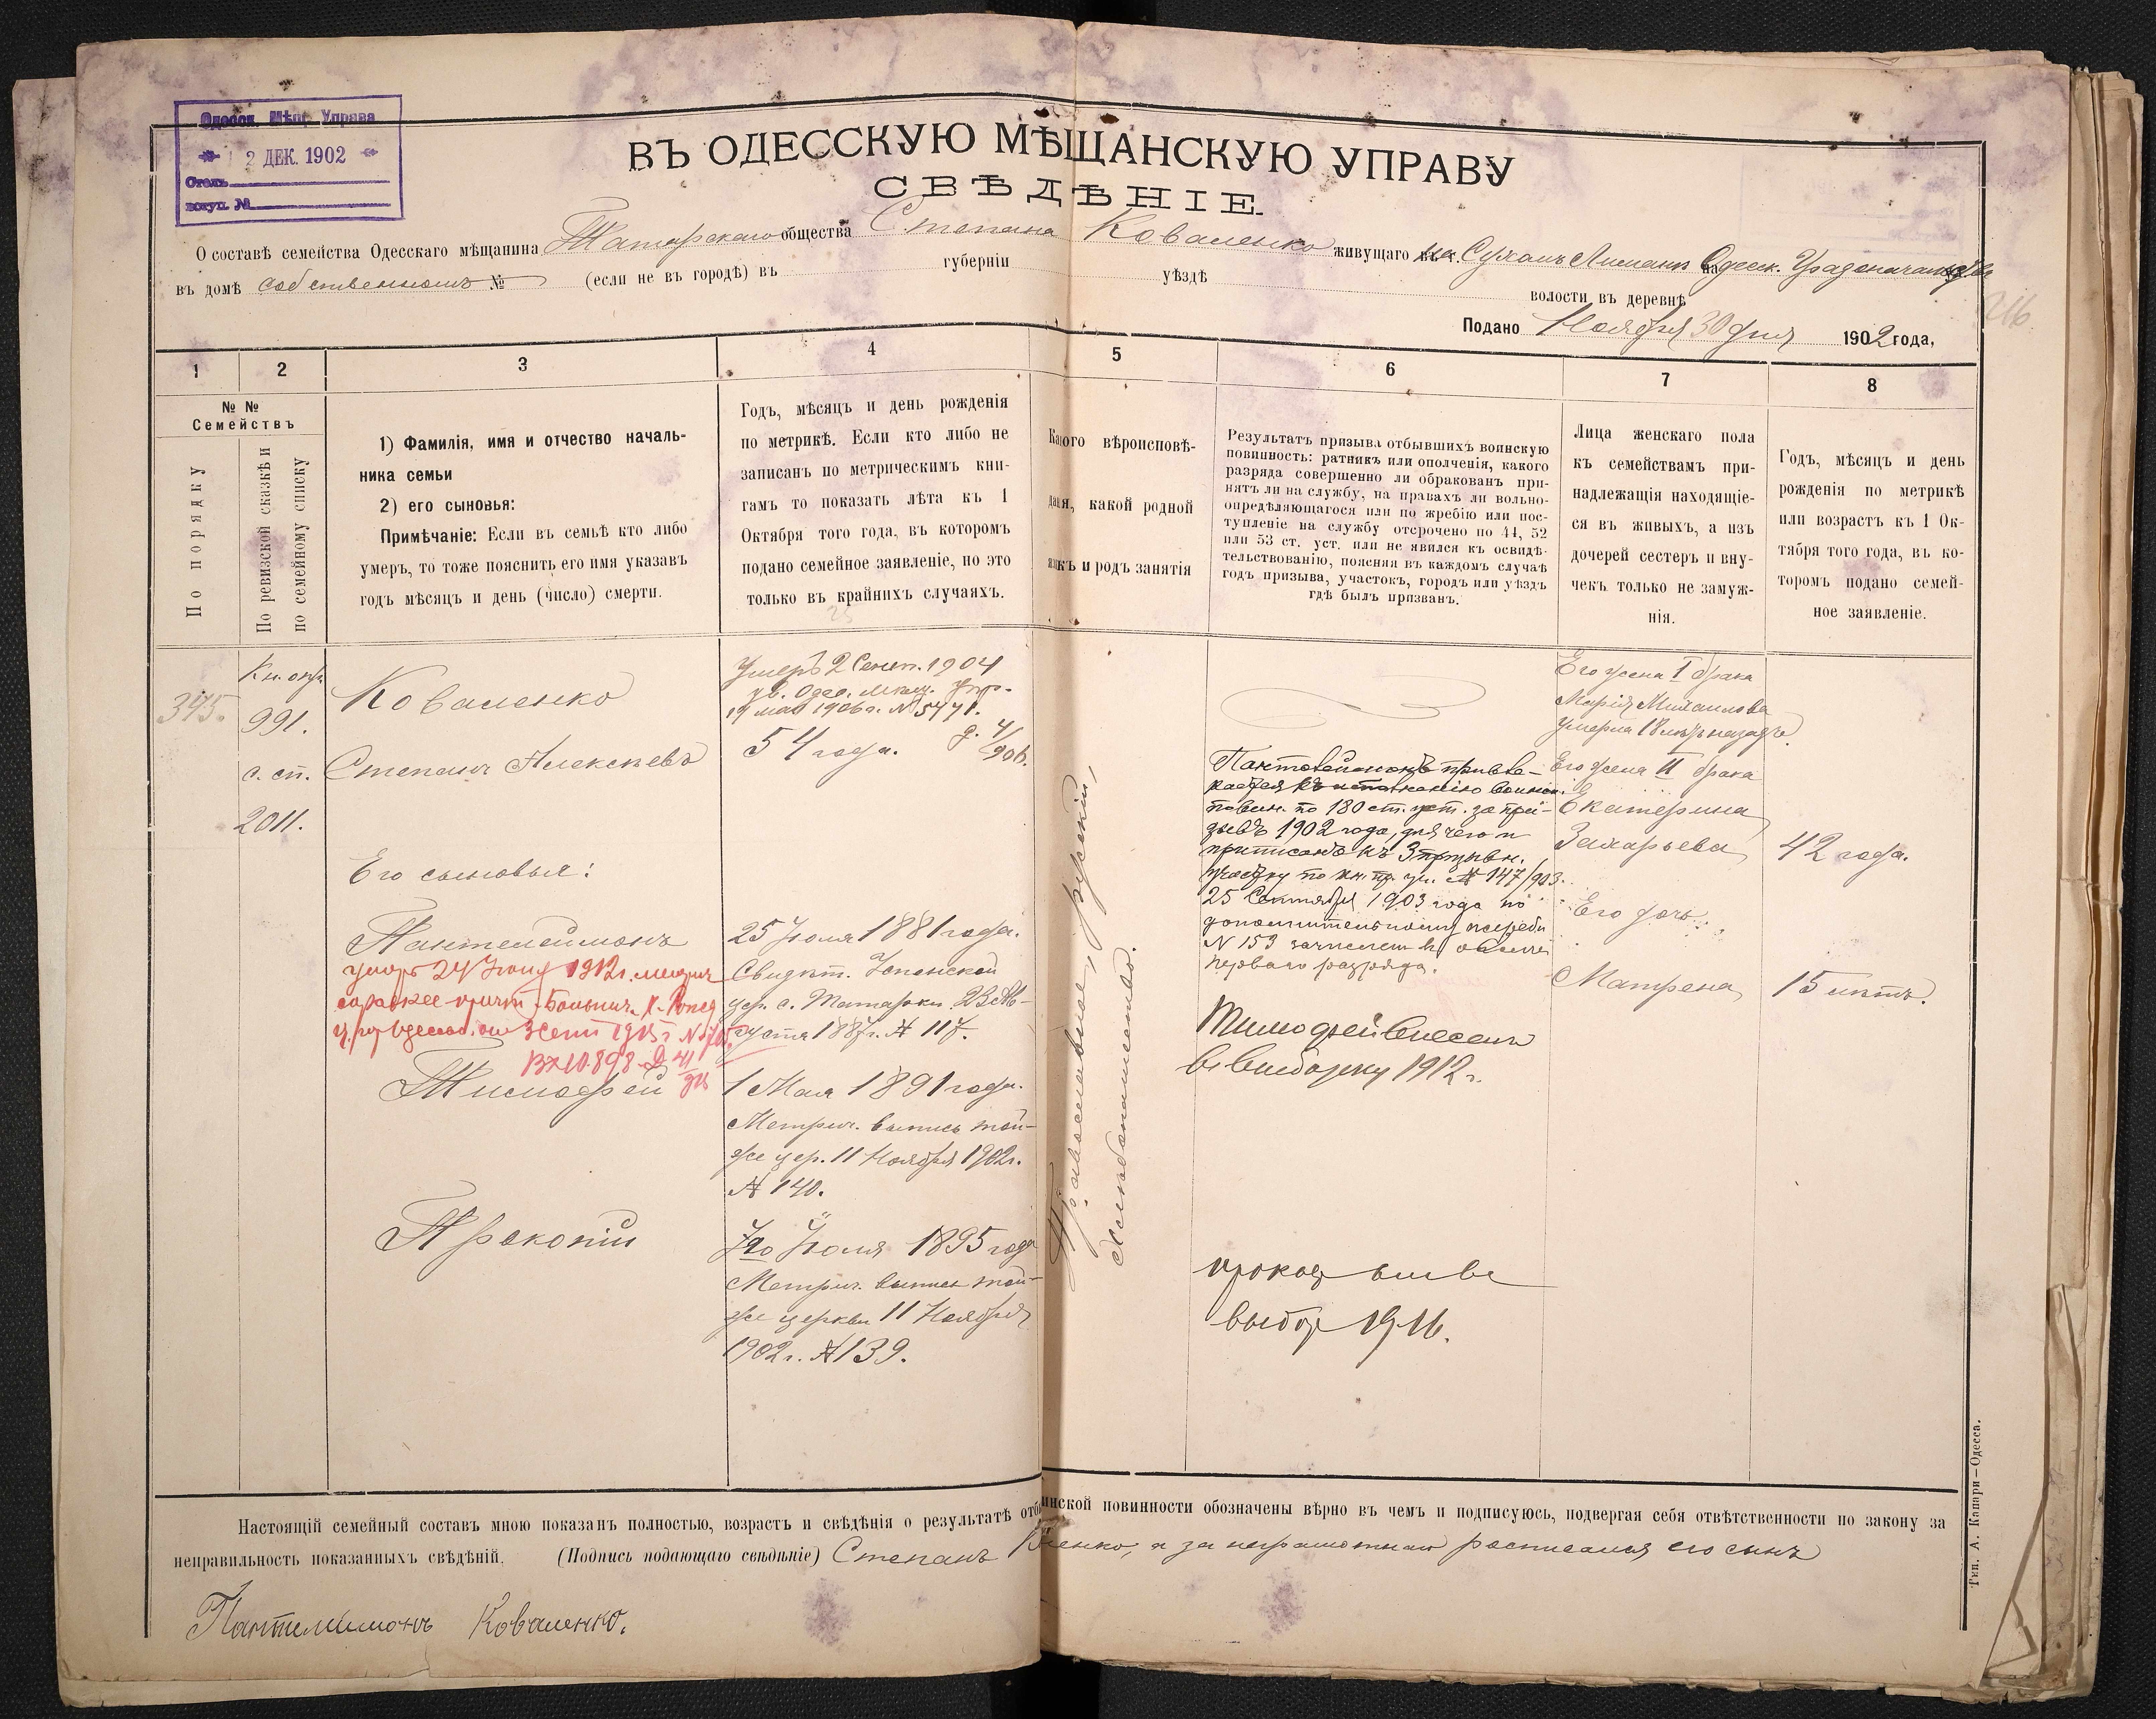 Одесск. Мѣщ. Управа
2 ДЕК. 1902
Столъ
вступ. №
ВЪ ОДЕССКУЮ МѢЩАНСКУЮ УПРАВУ
СВѢДѢНІЕ
О составѣ семейства Одесскаго мѣщанина Татарскаго общества Степана Коваленко живущаго на Сухомъ Лиманѣ Одесск. Градоначальства
въ домѣ собственномъ № (если не въ городѣ) въ губерніи уѣздѣ волости въ деревнѣ
216
Подано Ноября 30 дня 1902 года,
1 2 3 4 5 6 7 8
№ №
Семействъ
По порядку
По ревизской сказкѣ и
по семейному списку
1) Фамилія, имя и отчество началь-
ника семьи
2) его сыновья:
Примѣчаніе: Если въ семьѣ кто либо
умеръ, то тоже пояснить его имя указавъ
годъ мѣсяцъ и день (число) смерти.
Годъ, мѣсяцъ и день рожденія
по метрикѣ. Если кто либо не
записанъ по метрическимъ кни-
гамъ то показать лѣта къ 1
Октября того года, въ которомъ
подано семейное заявленіе, но это
только въ крайнихъ случаяхъ.
Какого вѣроисповѣ-
данія, какой родной
языкъ и родъ занятія
Результатъ призыва отбывшихъ воинскую
повинность: ратникъ или ополченія, какого
разряда совершенно ли обракованъ при-
нятъ ли на службу, на правахъ ли вольно-
опредѣляющагося или по жребію или пос-
тупленіе на службу отсрочено по 44, 52
или 53 ст. уст. или не явился къ освидѣ-
тельствованію, поясняя въ каждомъ случаѣ
годъ призыва, участокъ, городъ или уѣздъ
гдѣ былъ призванъ.
Лица женскаго пола
къ семействамъ при-
надлежащія находящіе-
ся въ живыхъ, а изъ
дочерей сестеръ и вну-
чекъ только не замуж-
нія.
Годъ, мѣсяцъ и день
рожденія по метрикѣ
или возрастъ къ 1 Ок-
тября того года, въ ко-
торомъ подано семей-
ное заявленіе.
375.
991.
с. сп.
2011.
Коваленко
Степанъ Алексѣевъ
Его сыновья:
Пантелеймонъ
умеръ 24
Тимофей
Прокопій
Умеръ 2 Сент. 1904
19 мая 1906 г. № 5471.
54 года.
25 Іюля 1881 года.
Свидѣт. Успенской
цер. с. Татарки 23 Ав-
густа 1887 г. № 117.
1 Мая 1891 года.
Метрич. выпись той-
же цер. 11 Ноября 1902 г.
№ 140.
Іюля 1895 года
Метрич. выпись той-
же церкви 11 Ноября
1902 г. № 139.
Православное, русскій,
Хлѣбопашество.
Пантелеймонъ привле-
кается къ отбыванію воинск.
повин. по 180 ст. уст. за при-
зывъ 1902 года, для чего и
приписанъ къ 3 призывн.
участку по кн. пр. уч. № 147/903.
25 Сентября 1903 года по
дополнительному жеребью
№ 153 зачисленъ въ ополч.
перваго разряда.
Тимофей внесенъ
въ выборку 1912 г.
1916.
Его жена I брака
Марія Михайлова
умерла 18 лѣтъ назадъ.
Его жена II брака
Екатерина
Захарьева
Его дочь:
Матрена
42 года.
15 лѣтъ.
Настоящій семейный составъ мною показанъ полностью, возрастъ и свѣдѣнія о результатѣ отб инской повинности обозначены вѣрно въ чемъ и подписуюсь, подвергая себя отвѣтственности по закону за
неправильность показанныхъ свѣдѣній. (Подпись подающаго свѣдѣніе) Степанъ енко, а за неграмотнаго росписался его сынъ
Пантелимонъ Коваленко.
Тип. А. Капари—Одесса.